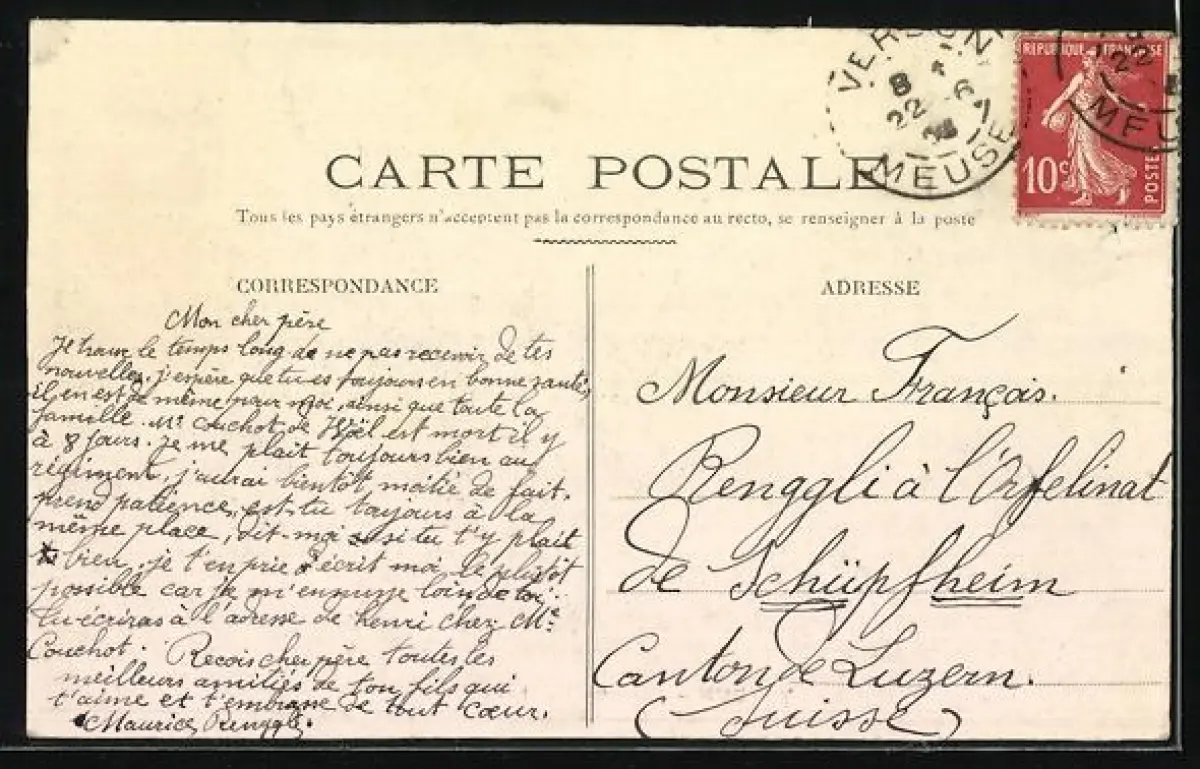 CARTE POSTALE
Tous les pays étrangers n'acceptent pas la correspondance au recto, se renseigner à la poste
CORRESPONDANCE
Mon cher père
Je trouve le temps long de ne pas recevoir de tes
nouvelles. j'espère que tu es toujours en bonne santé,
il en est de même pour moi, ainsi que toute la
famille. Mr Couchot de est mort il y
à 8 jours. Je me plait toujours bien au
régiment, j'aurai bientôt moitié de fait.
prend patience, est-tu toujours à la
même place, dit-moi si tu t'y plait
bien, je t'en prie écrit moi le plutôt
possible car je m'ennuye loin de toi
tu écriras à l'adresse de henri chez Mr
Couchot. Recois cher père toutes les
meilleurs amitiés de ton fils qui
t'aime et t'embrasse de tout cœur.
Maurice Renggli.
ADRESSE
Monsieur François.
Renggli à l'Orfelinat
de Schüpfheim
Canton de Luzern.
(Suisse)
8
22 6
MEUSE
REPUBLIQUE FRANÇAISE
10c
POSTES
22
MEUSE